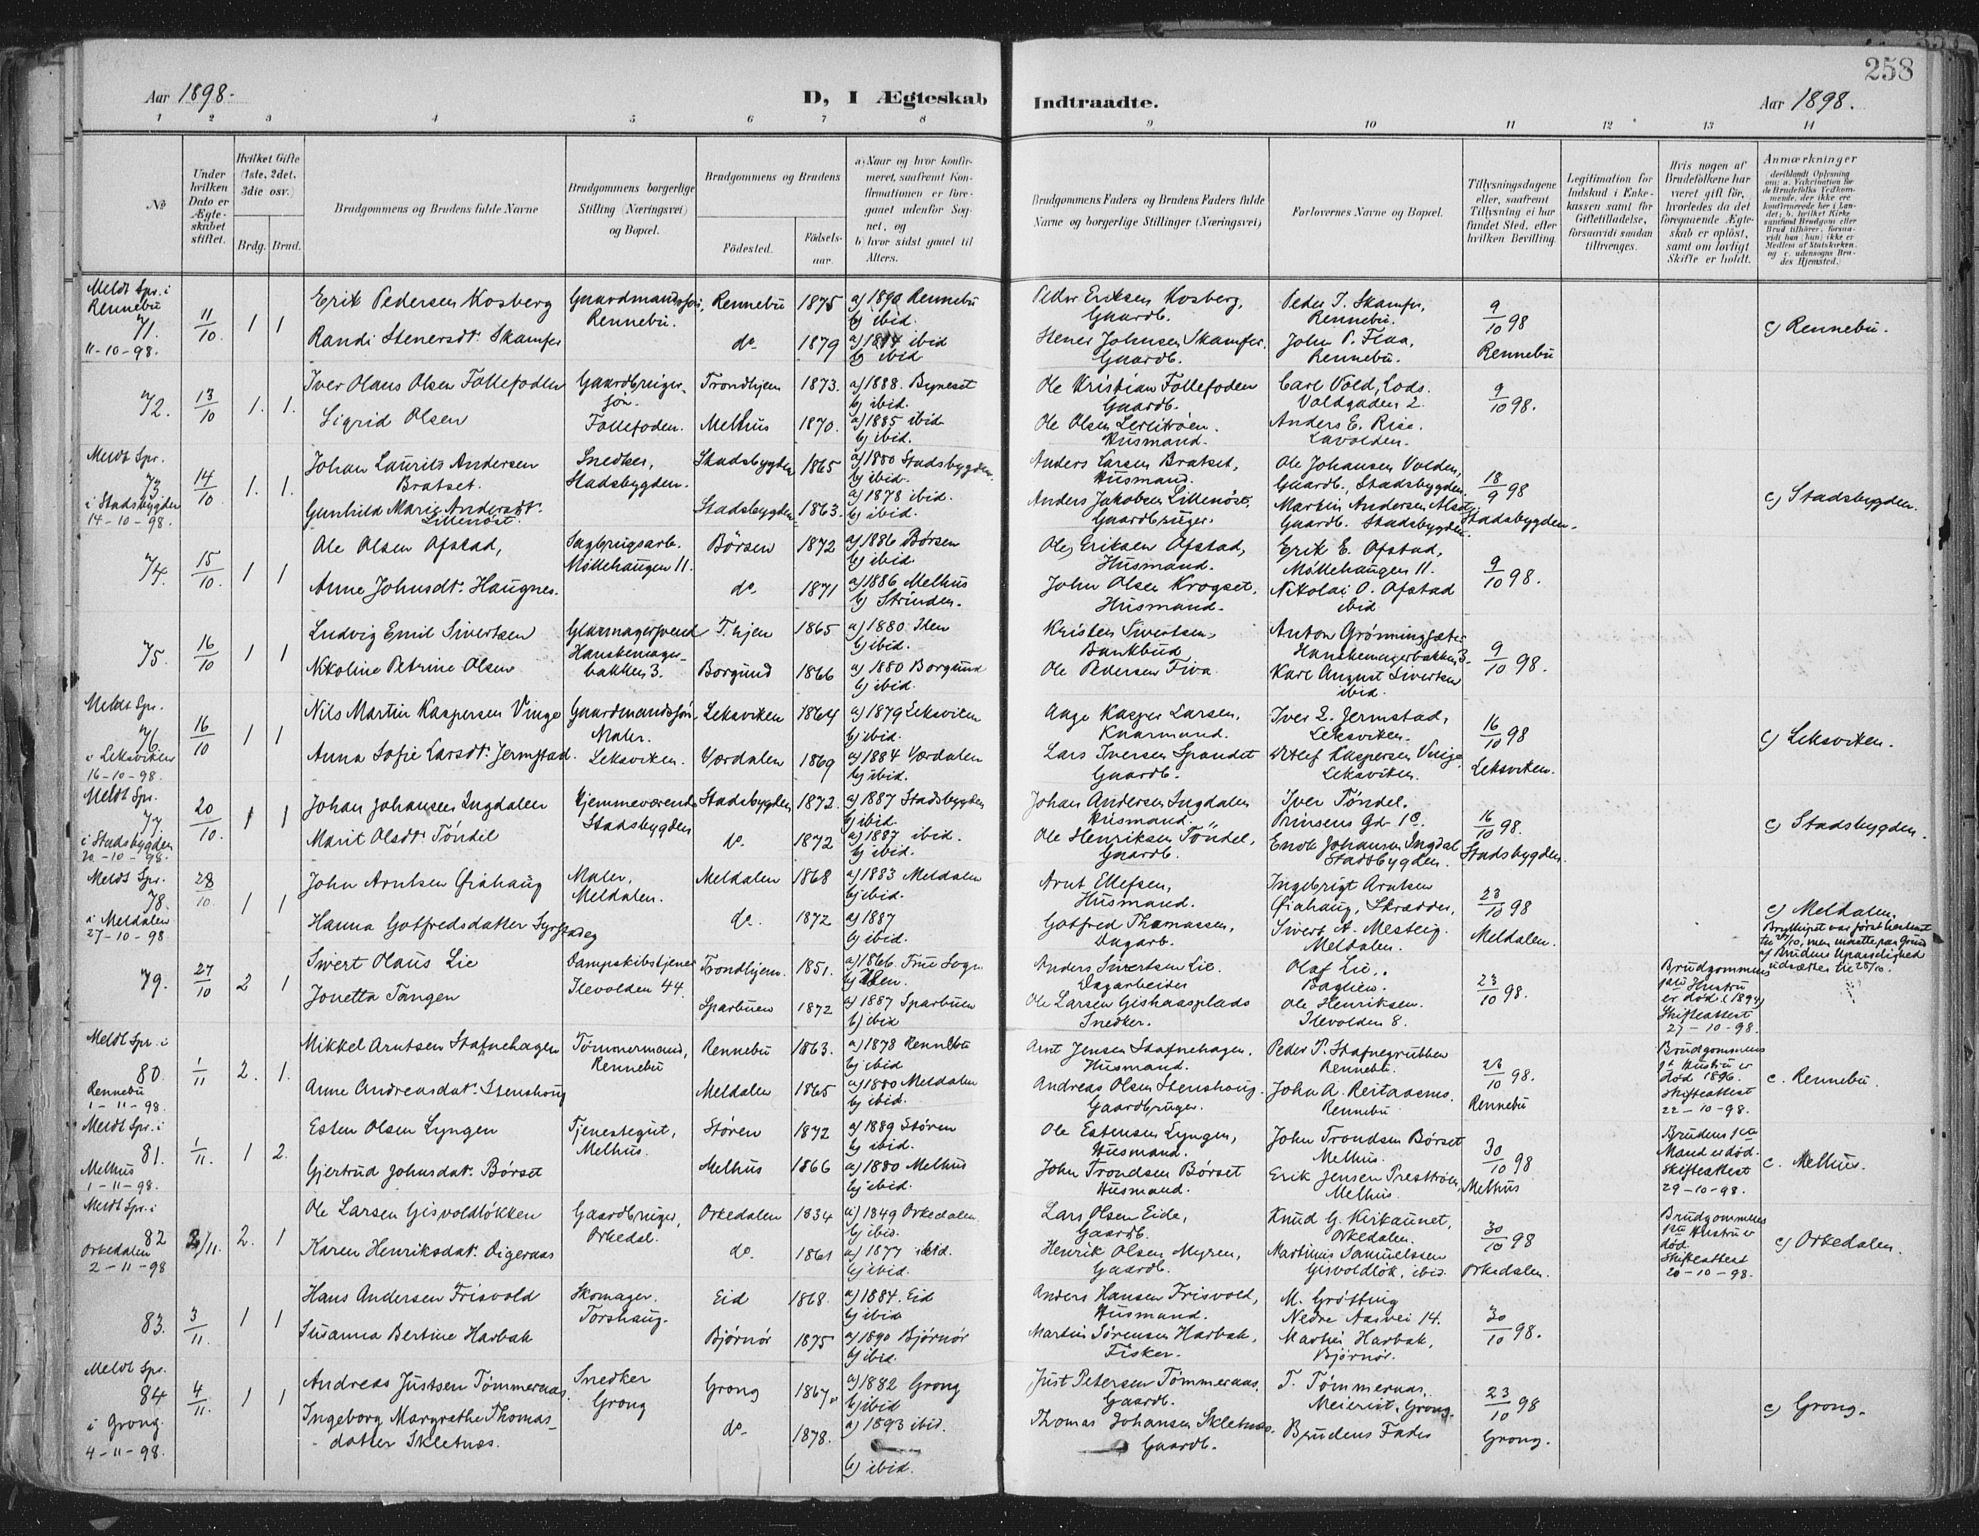 258
Aar 1898.
D, I Ægteskab Indtraadte.
Aar 1898.
1 2 3 4 5 6 7 8 9 10 11 12 13 14
No
Under hvilken Dato er Ægteskabet stiftet.
Hvilket Gifte (1ste, 2det, 3die osv.)
Brdg. Brud.
Brudgommens og Brudens fulde Navne
Brudgommens borgerlige Stilling (Næringsvei) og Bopæl.
Brudgommens og Brudens
Fødested.
Fødsels-aar.
a) Naar og hvor konfirmeret, saafremt Konfirmationen er foregaaet udenfor Sognet, og
b) hvor sidst gaaet til Alters.
Brudgommens Faders og Brudens Faders fulde Navne og borgerlige Stillinger (Næringsvei)
Forlovernes Navne og Bopæl.
Tillysningsdagene eller, saafremt Tillysning ei har fundet Sted, efter hvilken Bevilling.
Legitimation for Indskud i Enkekassen samt for Giftetilladelse, forsaavidt saadan tiltrænges.
Hvis nogen af Brudefolkene har været gift før, hvorledes da det foregaaende Ægteskab er opløst, samt om lovligt Skifte er holdt.
Anmærkninger
(deriblandt Oplysning om: a. Vakcination for de Brudefolks Vedkommende, der ikke ere konfirmerede her i Landet; b. hvilket Kirkesamfund Brudgom eller Brud tilhører, forsaavidt han (hun) ikke er Medlem af Statskirken, og c. udensogns Brudes Hjemsted.)
Meldt Spr. i Rennebu 71. 11-10-98.
11/10 1 1
Erik Pedersen Kosberg Gaardmandssøn, Rennebu. Rennebu 1875 a) 1890 Rennebu b) ibid.
Peder Eriksen Kosberg, Gaardb. Peder T. Skamfer, Rennebu. 9/10 98 Rennebu c) Rennebu.
Randi Stenersdt. Skamfer do. 1879 a) 1894 ibid b) ibid
Stener Johnsen Skamfer. Gaardb. John P. Flaa, Rennebu.
72. 13/10 1. 1.
Iver Olaus Olsen Follefoden Gaardbruger-søn. Follefoden. Trondhjem 1873. a) 1888. Byneset b) ibid.
Ole Kristian Follefoden Gaardb. Carl Vold, Lods. Voldgaden 2. 9/10 98.
Sigrid Olsen Melhus 1870. a) 1885 ibid b) ibid.
Ole Olsen Husmand. Anders E. Rise.
Meldt Spr. 73 i Stadsbygden 14-10-98.
14/10 1. 1.
Johan Laurits Andersen Bratset. Snedker, Stadsbygden. Stadsbygden 1865 a) 1880 Stadsbygden b) ibid.
Anders Larsen Bratset, Husmand. Ole Johansen Volden, Gaardb., Stadsbygden. 18/9 98 Stadsbygden. c) Stadsbygden.
Gunhild Marie Andersdt. Lillenøst. Stadsbygden 1863. a) 1878 ibid. b) ibid.
Anders Jakobsen Lillenøst, Gaardbruger. Martin Andersen Gaardb. Stadsbygden.
74. 15/10. 1 1
Ole Olsen Ofstad, Sagbrugsarb. Møllehaugen 11. Børsen 1872 a) 1886 Børsen b) ibid.
Ole Eriksen Ofstad, Husmand. Erik E. Ofstad, Møllehaugen 11. 9/10 98.
Anne Johnsdt. Haugnes. do. 1871 a) 1886 Melhus b) Strinden.
John Olsen Krogset, Husmand. Nikolai O. Ofstad ibid
75. 16/10 1 1
Ludvig Emil Sivertsen Glarmagersvend Hanskemager-bakken 3. T.hjem 1865 a) 1880 Ilen b) ibid.
Kristen Sivertsen, Bankbud Anton Grønningsæter Hanskemagerbakken 3. 9/10 98.
Nikoline Petrine Olsen Borgund 1866 a) 1880 Borgund b) ibid.
Ole Pedersen Fiva. Karl August Sivertsen ibid.
Meldt Spr. 76. i Leksviken 16-10-98.
16/10 1 1
Nils Martin Kaspersen Vinge Gaardmandssøn, Maler. Leksviken. Leksviken 1864 a) 1879 Leksviken b) ibid.
Aage Kasper Larsen, Iver L. Jermstad, Leksviken. 16/10 98 Leksviken. c) Leksviken.
Anna Sofie Larsdt. Jermstad. Værdalen 1869 a) 1884 Værdalen b) ibid.
Lars Iversen Spandet Gaardb. Kaspersen Vinge Leksviken.
Meldt Spr. 77 i Stadsbygden 20-10-98.
20/10. 1 1
Johan Johansen Ingdalen Hjemmeværende Stadsbygden Stadsbygden 1872. a) 1887 Stadsbygden b) ibid.
Johan Andersen Ingdalen Husmand. Iver Tøndel. Prinsens Gd. 1 C. 16/10 98. Stadsbygden. c) Stadsbygden.
Marit Olsdt. Tøndel do. 1872 a) 1887 ibid. b) ibid.
Ole Henriksen Tøndel, Gaardb. Enok Johansen Ingdal Stadsbygden.
Meldt Spr. 78. i Meldalen 27-10-98.
28/10. 1 1
John Arntsen Øiahaug Maler, Meldalen. Meldalen 1868 a) 1883 Meldalen b) ibid.
Arnt Ellefsen, Husmand. Ingebrigt Arntsen Øiahaug, Skrædder, 23/10 98 Meldalen. c) Meldalen.
Hanna Gotfredsdatter do. 1872 a) 1887 b) ibid.
Gotfred Thomassen, Dagarb. Sivert A. Mesteig. Meldalen.
Brylluppet var først bestemt til 27/10, men maatte paa Grund af Brudens Upasselighed udsættes til 28/10.
79. 27/10 2 1
Sivert Olaus Lie Dampskibstjener Ilevolden 44. Trondhjem 1851. a) 1866 Frue Sogn b) Ilen.
Anders Sivertsen Lie. Dagarbeider Olaf Lie, Baglien. 23/10 98.
Brudgommens 1ste Hustru er død (1894) Skifteattest 27-10-98.
Jonetta Tangen Sparbuen 1872 a) 1887 Sparbuen b) ibid
Ole Larsen Gishaasplads Snedker. Ole Henriksen. Ilevolden 8.
Meldt Spr. i 80. Rennebu 1-11-98.
1/11 2. 1.
Mikkel Arntsen Stafnehagen Tømmermand, Rennebu Rennebu 1863. a) 1878 Rennebu b) ibid
Arnt Jensen Stafnehagen, Husmand. Peder P. Stafnegrubben Rennebu. 23/10 98. Rennebu
Brudgommens 1ste Hustru er død 1896. Skifteattest 22-10-98. c. Rennebu.
Anne Andreasdat. Stenshoug Meldalen 1865 a) 1880 Meldalen b) ibid.
Andreas Olsen Stenshoug. Gaardbruger. John A. Rennebu
Meldt Spr. i 81. Melhus 1-11-98.
1/11. 1 2.
Esten Olsen Lyngen Tjenestegut, Melhus. Støren 1872 a) 1889 Støren b) ibid.
Ole Estensen Lyngen, Husmand. John Trondsen Børset Melhus. 30/10 98 Melhus
Brudens 1ste Mand er død. Skifteattest 29-10-98. c. Melhus.
Gjertrud Johnsdat. Børset Melhus 1866 a) 1880 Melhus b) ibid.
John Trondsen Børset Husmand. Erik Jensen Prestrøen, Melhus.
Meldt Spr. i 82 Orkedalen 2-11-98
2/11. 2. 1
Ole Larsen Gisvoldløkken Gaardbruger, Orkedal. Orkedalen 1834 a) 1849 Orkedalen b) ibid.
Lars Olsen Eide, Gaardb. Knud G. Kirkaunet, Orkedalen. 30/10 98 Orkedalen.
Brudgommens 1ste Hustru er død. Skifteattest 20-10-98. c) Orkedalen.
Karen Henriksdat. Digernas do. 1861 a) 1877 ibid. b) ibid.
Henrik Olsen Myren, Gaardb. Martinus Samuelssen Gisvoldløk, ibid.
83. 3/11. 1 1
Hans Andersen Frisvold Skomager. Torshaug. Eid 1868. a) 1884. Eid b) ibid
Anders Hansen Frisvold, Husmand. M. Grøtting Nedre Aasvei 14. 30/10 98.
Susanna Bertine Harbak Bjørnør 1875 a) 1890 Bjørnør b) ibid.
Martin Sørensen Harbak, Fisker. Martin Harbak, Bjørnør.
Meldt Spr. 84 i Grong. 4-11-98.
4/11. 1 1
Andreas Justsen Tømmernas. Snedker Grong Grong 1867. a) 1882 Grong b) ibid
Just Petersen Tømmernas, Gaardb. T. Tømmernas, Meierist, Grong. 23/10 98 Grong. c) Grong.
Ingeborg Margrethe Thomas-datter Skletnæs. do. 1878. a) 1893 ibid. b) ibid.
Thomas Johansen Skletnæs. Gaardb. Brudens Fader